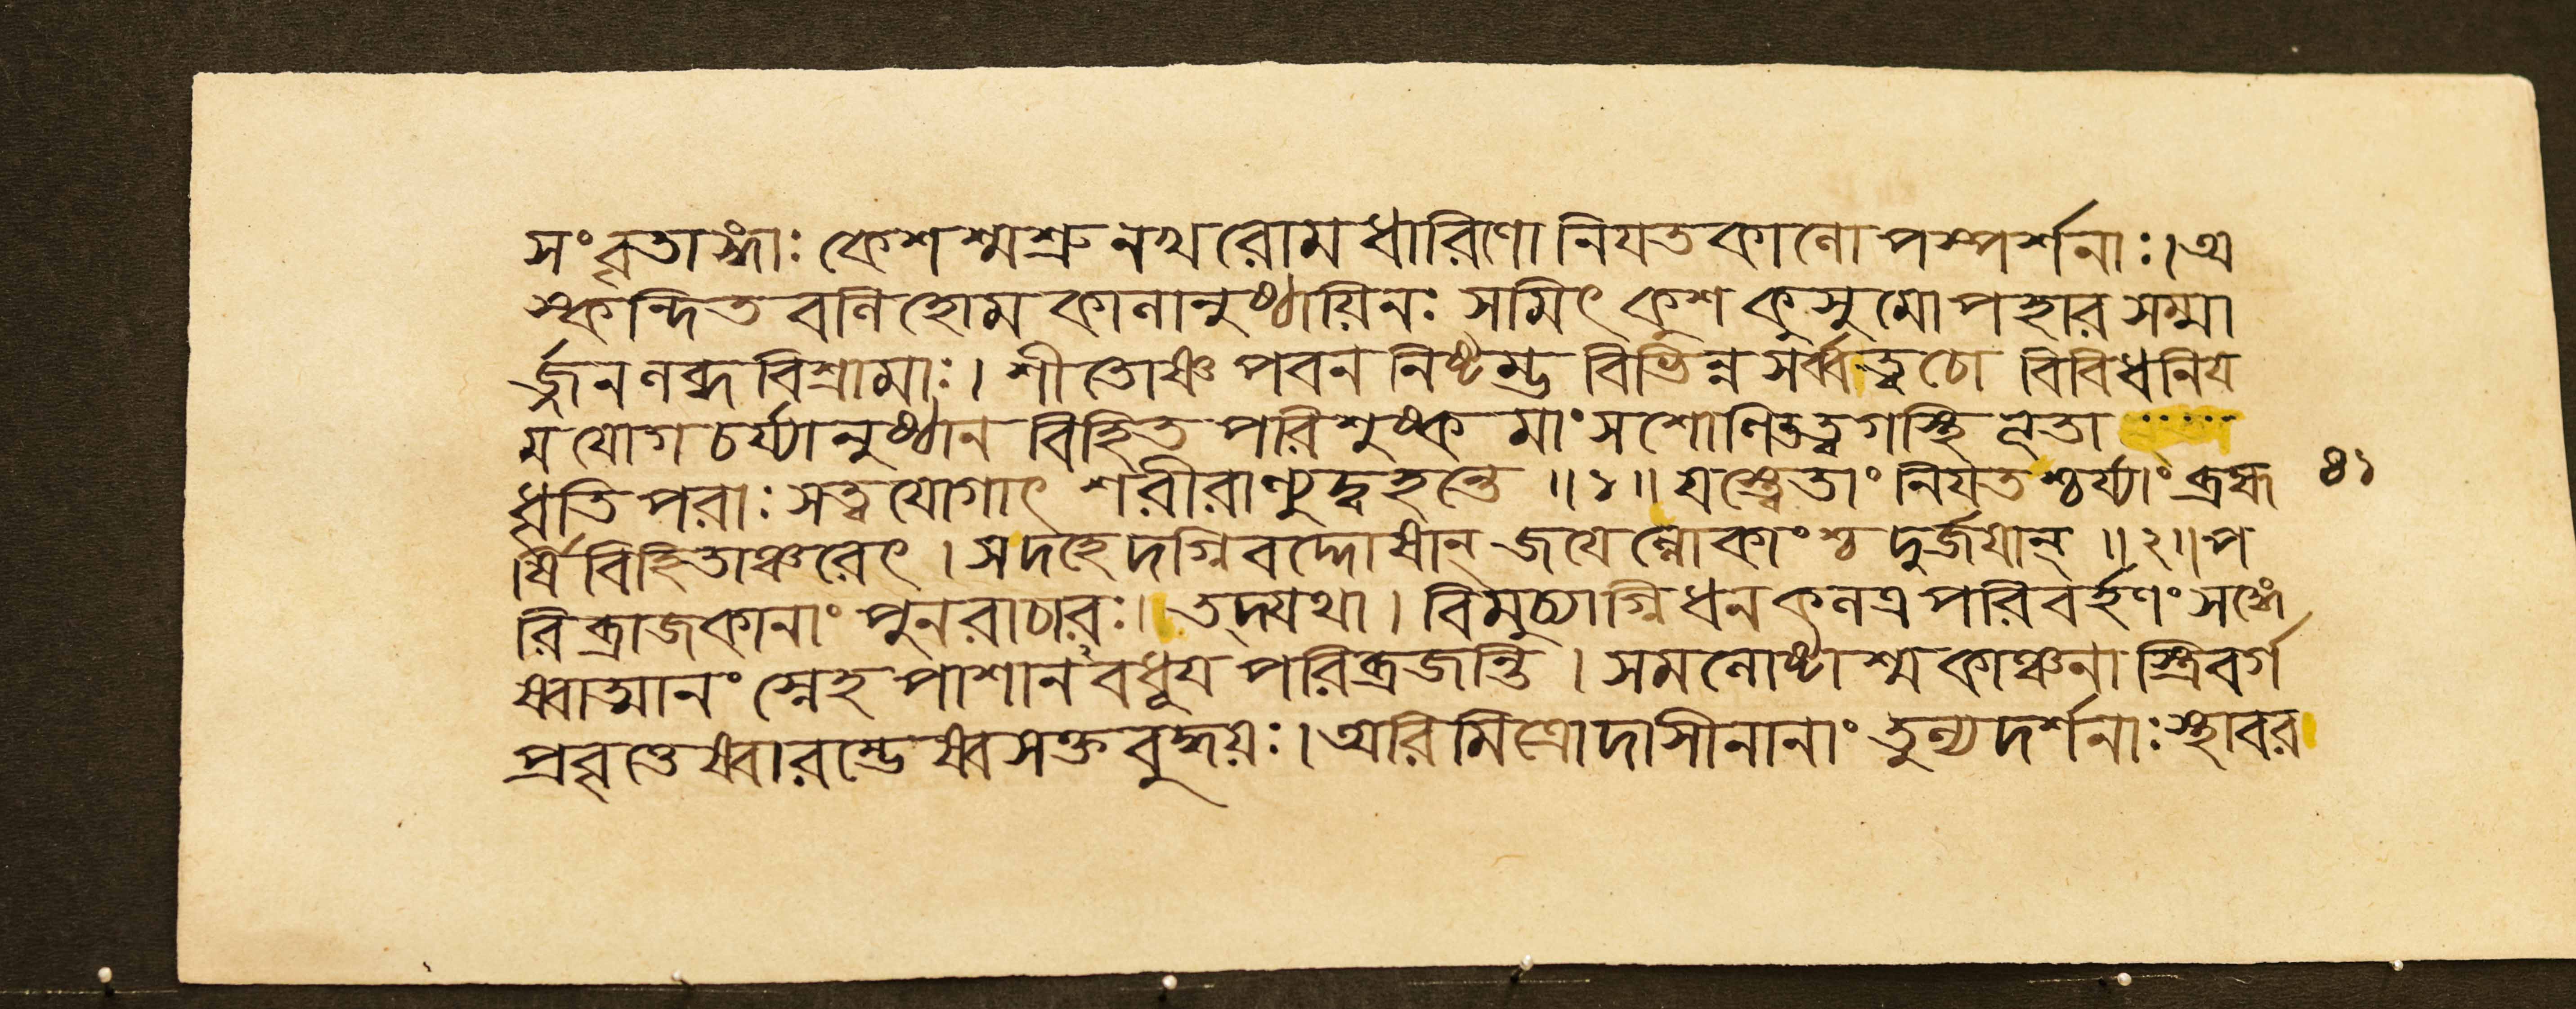 সংবৃতাঙ্গাঃ কেশশ্মশ্রুনখরোমধারিণো নিয়তকালোপস্পর্শনাঃ। অ
স্কন্দিতবলিহোমকালানুষ্ঠায়িনঃ সমিৎকুশকুসুমোপহারসম্মা
র্জ্জনলব্ধবিশ্রামাঃ। শীতোষ্ণপবননিষ্টম্ভবিভিন্নসর্ব্বত্বচো বিবিধনিয়
ময়োগচর্য্যানুষ্ঠানবিহিতপরিশুষ্কমাংসশোণিতত্বগস্থিভূতা
ধৃতিপরাঃ সত্ত্বযোগাৎ শরীরাণ্যুদ্বহন্তে ॥১॥ যস্ত্বেতাং নিয়তশ্চর্য্যাং ব্রহ্ম ৪১
র্ষিবিহিতাঞ্চরেৎ। স দহেদগ্নিবদ্দোষান্ জয়েল্লোকাংশ্চ দুর্জয়ান্ ॥২॥ প
রিব্রাজকানাং পুনরাচারঃ। তদ্যথা। বিমুচ্যাগ্নিধনকলত্রপরিবর্হণং সঙ্গে
ষ্বাত্মানং স্নেহপাশানবধূয় পরিব্রজন্তি। সমলোষ্টাশ্মকাঞ্চনাস্ত্রিবর্গ
প্রবৃত্তেষ্বারম্ভেষ্বসক্তবুদ্ধয়ঃ। অরিমিত্রোদাসীনানাং তুল্যদর্শনাঃ স্থাবর